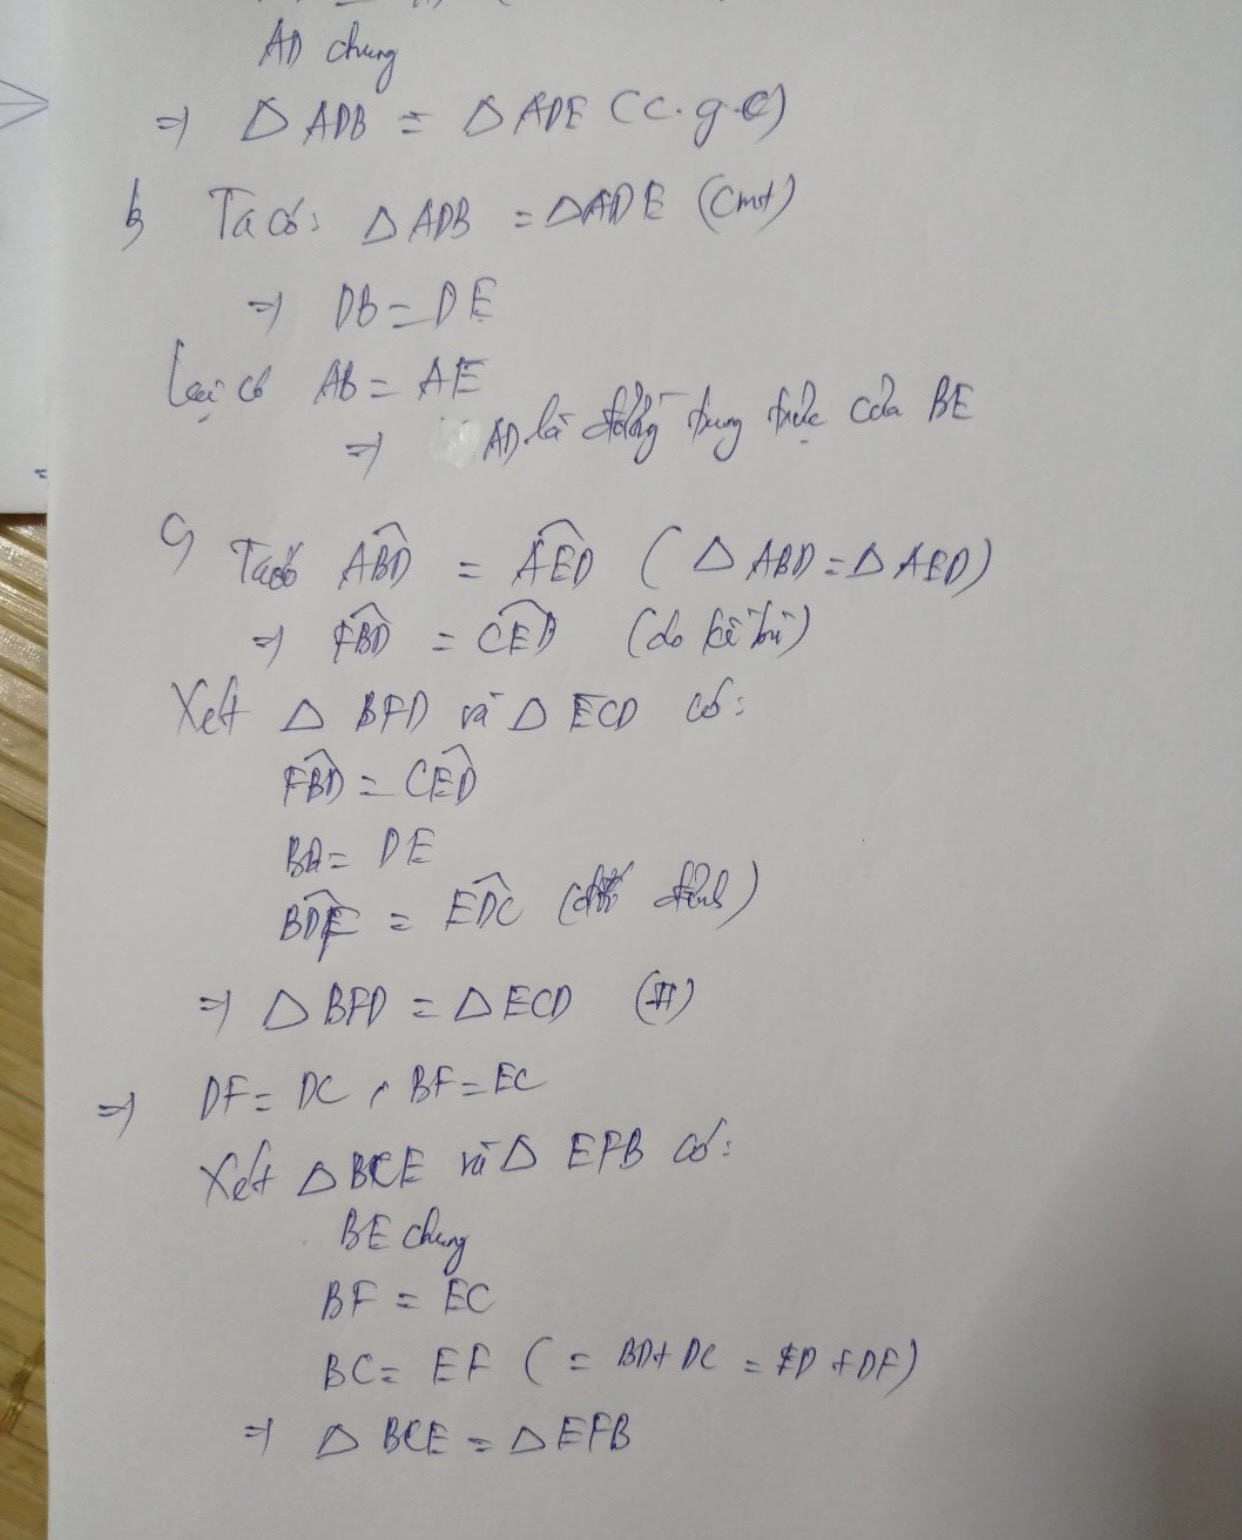 AD chung
=> Δ ADB = Δ ADE (c.g.c)
b, Ta có: Δ ADB = Δ ADE (cmt)
=> DB = DE
Lại có AB = AE
=> AD là đường trung trực của BE
c, Ta có ABD = AED (Δ ABD = Δ AED)
=> FBD = CED (do kề bù)
Xét Δ BFD và Δ ECD có:
FBD = CED
BD = DE
BDF = EDC (đối đỉnh)
=> Δ BFD = Δ ECD
=> DF = DC, BF = EC
Xét Δ BCE và Δ EFB có:
BE chung
BF = EC
BC = EF (= BD + DC = ED + DF)
=> Δ BCE = Δ EFB